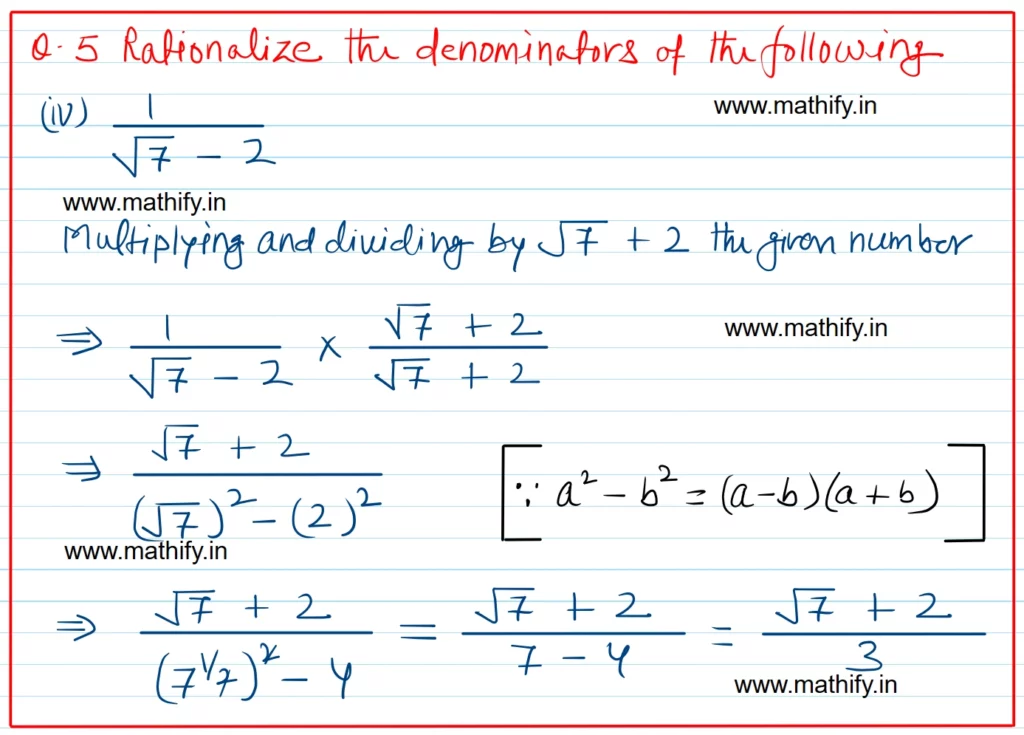 Q.5 Rationalize the denominators of the following
(iv) 1/(√7 - 2)
www.mathify.in
www.mathify.in
Multiplying and dividing by √7 + 2 the given number
⇒ 1/(√7 - 2) × (√7 + 2)/(√7 + 2)
www.mathify.in
⇒ (√7 + 2)/((√7)² - (2)²) [∵ a² - b² = (a-b)(a+b)]
www.mathify.in
⇒ (√7 + 2)/((7^1/7)^2 - 4) = (√7 + 2)/(7 - 4) = (√7 + 2)/3
www.mathify.in